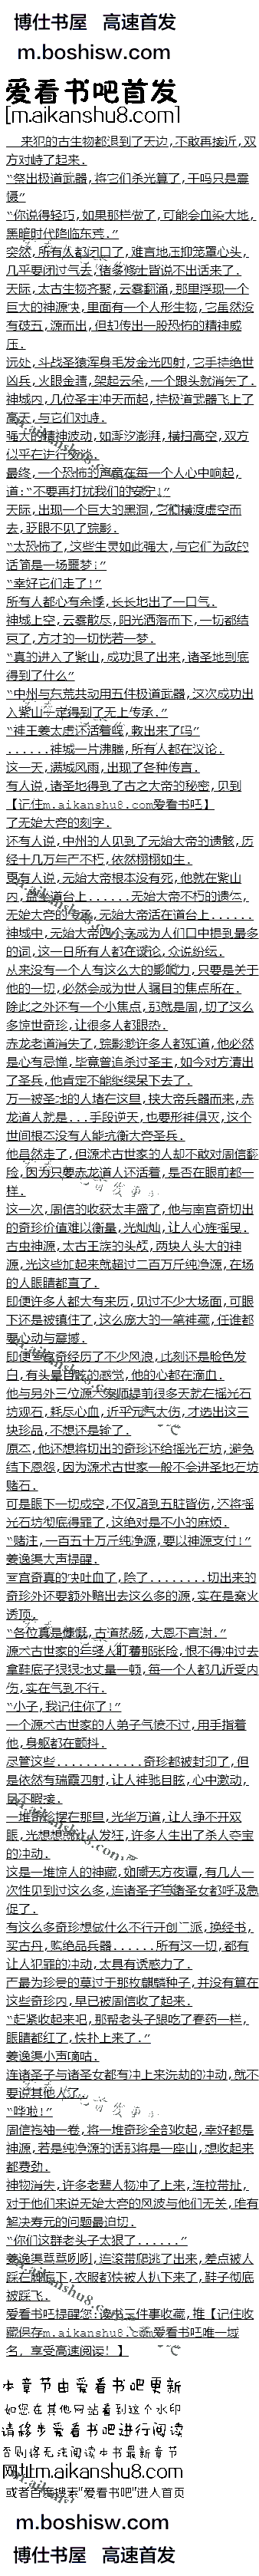 博仕书屋 高速首发
m.boshisw.com
爱看书吧首发
[m.aikanshu8.com]
来犯的古生物都退到了天边,不敢再接近,双
方对峙了起来.
“祭出极道武器,将它们杀光算了,干吗只是震
慑”
“你说得轻巧,如果那样做了,可能会血染大地,
黑暗时代降临东荒.”
突然,所有人都闭口了,难言地压抑笼罩心头,
几乎要闭过气去,诸多修士皆说不出话来了.
天际,太古生物齐聚,云雾翻涌,那里浮现一个
巨大的神源块,里面有一个人形生物,它虽然没
有破五,源而出,但却传出一股恐怖的精神威
压.
远处,斗战圣猿浑身毛发金光四射,它手持绝世
凶兵,火眼金睛,架起云朵,一个跟头就消失了.
神城内,几位圣主冲天而起,持极道武器飞上了
高天,与它们对峙.
强大的精神波动,如海汐澎湃,横扫高空,双方
似乎在进行交谈.
最终,一个恐怖的声音在每一个人心中响起,
道:“不要再打扰我们的安宁!”
天际,出现一个巨大的黑洞,它们横渡虚空而
去,眨眼不见了踪影.
“太恐怖了,这些生灵如此强大,与它们为敌的
话简是一场噩梦!”
“幸好它们走了!”
所有人都心有余悸,长长地出了一口气.
神城上空,云雾散尽,阳光洒落而下,一切都结
束了,方才的一切恍若一梦.
“真的进入了紫山,成功退了出来,诸圣地到底
得到了什么”
“中州与东荒共动用五件极道武器,这次成功出
入紫山一定得到了无上传承.”
“神王姜太虚还活着吗,救出来了吗”
......神城一片沸腾,所有人都在议论.
这一天,满城风雨,出现了各种传言.
有人说,诸圣地得到了古之大帝的秘密,见到
【记住m.aikanshu8.com爱看书吧】
了无始大帝的刻字.
还有人说,中州的人见到了无始大帝的遗骸,历
经十几万年产不朽,依然栩栩如生.
更有人说,无始大帝根本没有死,他就在紫山
内,盘坐道台上......无始大帝不朽的遗体,
无始大帝的古墓,无始大帝活在道台上......
神城中,无始大帝四个字成为人们口中提到最多
的词,这一日所有人都在谈论,众说纷纭.
从来没有一个人有这么大的影响力,只要是关于
他的一切,必然会成为世人瞩目的焦点所在.
除此之外还有一个小焦点,那就是周,切了这么
多惊世奇珍,让很多人都眼热.
赤龙老道消失了,踪影渺许多人都知道,他必然
是心有忌惮,毕竟曾追杀过圣主,如今对方请出
了圣兵,他肯定不能继续呆下去了.
万一被圣地的人堵在这里,挟大帝兵器而来,赤
龙道人就是...手段逆天,也要形神俱灭,这个
世间根本没有人能抗衡大帝圣兵.
他虽然走了,但源术古世家的人却不敢对周信翻
脸,因为只要赤龙道人还活着,是否在眼前都一
样.
这一次,周信的收获太丰盛了,他与南宫奇切出
的奇珍价值难以衡量,光灿灿,让人心旌摇曳.
古虫神源,太古王族的头颅,两块人头大的神
源,光这些加起来就超过二百万斤纯净源,在场
的人眼睛都直了.
即便许多人都大有来历,见过不少大场面,可眼
下还是被镇住了,这么庞大的一笔神藏,任谁都
要心动与震撼.
即便南宫奇经历了不少风浪,此刻还是脸色发
白,有头晕目眩的感觉,他的心都在滴血.
他与另外三位源术大师提前很多天就在摇光石
坊观石,耗尽心血,近乎元气大伤,才选出这三
块珍品,不想还是输了.
原本,他还想将切出的奇珍还给摇光石坊,避免
结下恩怨,因为源术古世家一般不会进圣地石坊
赌石.
可是眼下一切成空,不仅输到五脏皆伤,还将摇
光石坊彻底得罪了,这绝对是不小的麻烦.
“赌注,一百五十万斤纯净源,要以神源支付!”
姜逸渠大声提醒.
南宫奇真的快吐血了,除了........切出来的
奇珍外还要额外赔出去这么多的源,实在是窝火
透顶.
“各位真是慷慨,古道热肠,大恩不言谢.”
源术古世家的年轻人盯着那张脸,恨不得冲过去
拿鞋底子狠狠地丈量一顿,每一个人都几近受内
伤,实在气到不行.
“小子,我记住你了!”
一个源术古世家的人弟子气愤不过,用手指着
他,身躯都在颤抖.
尽管这些............奇珍都被封印了,但
是依然有瑞霞四射,让人神驰目眩,心中激动,
目不暇接.
一堆奇珍摆在那里,光华万道,让人挣不开双
眼,光想想就让人发狂,许多人生出了杀人夺宝
的冲动.
这是一堆惊人的神藏,如同天方夜谭,有几人一
次性见到过这么多,连诸圣子与诸圣女都呼吸急
促了.
有这么多奇珍想做什么不行开创门派,换经书,
买古丹,购绝品兵器......所有这一切,都有
让人犯罪的冲动,太具有诱惑力了.
产最为珍贵的莫过于那枚麒麟种子,并没有算在
这些奇珍内,早已被周信收了起来.
“赶紧收起来吧,那帮老头子跟吃了春药一样,
眼睛都红了,快扑上来了.”
姜逸渠小声嘀咕.
连诸圣子与诸圣女都有冲上来洗劫的冲动,就不
要说其他人了.
“哗啦!”
周信袍袖一卷,将一堆奇珍全部收起,幸好都是
神源,若是纯净源的话那将是一座山,想收起来
都费劲.
神物消失,许多老辈人物冲了上来,连拉带扯,
对于他们来说无始大帝的风波与他们无关,唯有
解决寿元的问题最迫切.
“你们这群老头子太狠了......”
姜逸渠哇哇咧咧,连滚带爬逃了出来,差点被人
踩在脚底下,衣服都快被人扒下来了,鞋子彻底
被踩飞.
爱看书吧提醒您:读书三件事收藏,推【记住收
藏保存m.aikanshu8.com爱看书吧唯一域
名，享受高速阅读！】
本章节由爱看书吧更新
如您在其他网站看到这个水印
请移步爱看书吧进行阅读
否则将无法阅读本书最新章节
网址m.aikanshu8.com
或者百度搜索"爱看书吧"进入首页
m.boshisw.com
博仕书屋 高速首发